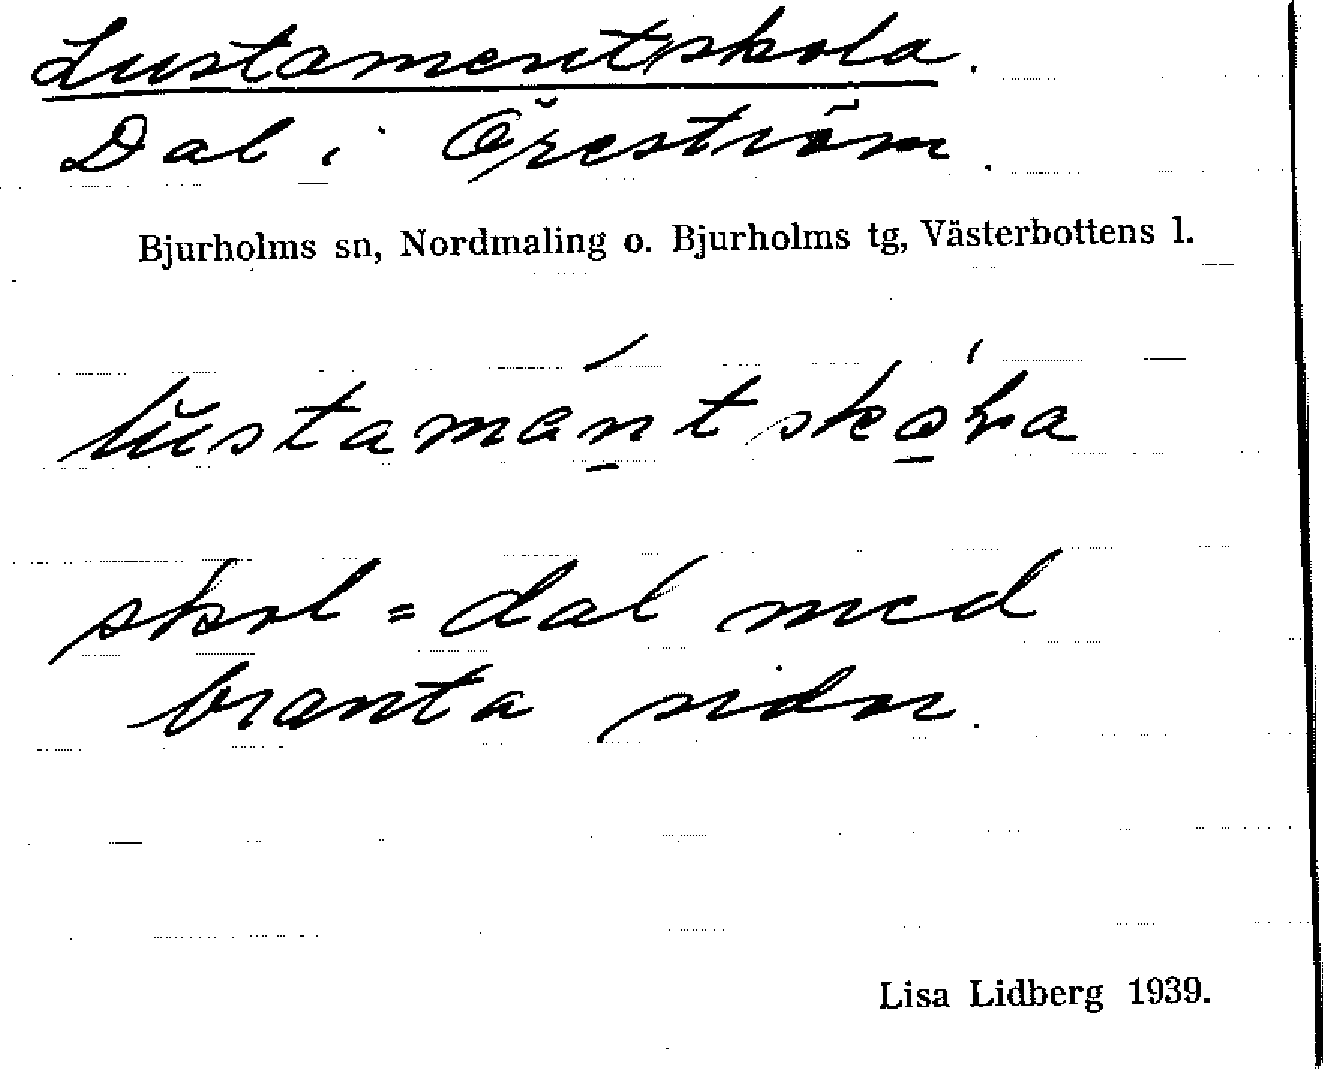 Lustamentskola.
Dal i Öreström.
Bjurholms sn, Nordmaling o. Bjurholms tg, Västerbottens l.
lustamäntskola
skol = dal med
branta sidor.
Lisa Lidberg 1939.